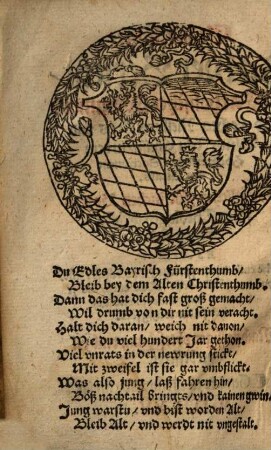 Du Edles Bayrisch Fürstenthumb/
Bleib bey dem Alten Christenthumb.
Dann das hat dich fast groß gemacht/
Wil drumb von dir nit sein veracht.
Halt dich daran/ weich nit dauon/
Wie du viel hundert Jar gethon.
Viel vnrats in der newrung steckt/
Mit zweifel ist sie gar vmbflickt.
Was also jung/ laß fahren hin/
Böß nachtail bringts/ vnd kainen gwin/
Jung warstu/ vnd bist worden Alt/
Bleib Alt/ vnd werdt nit vngestalt.